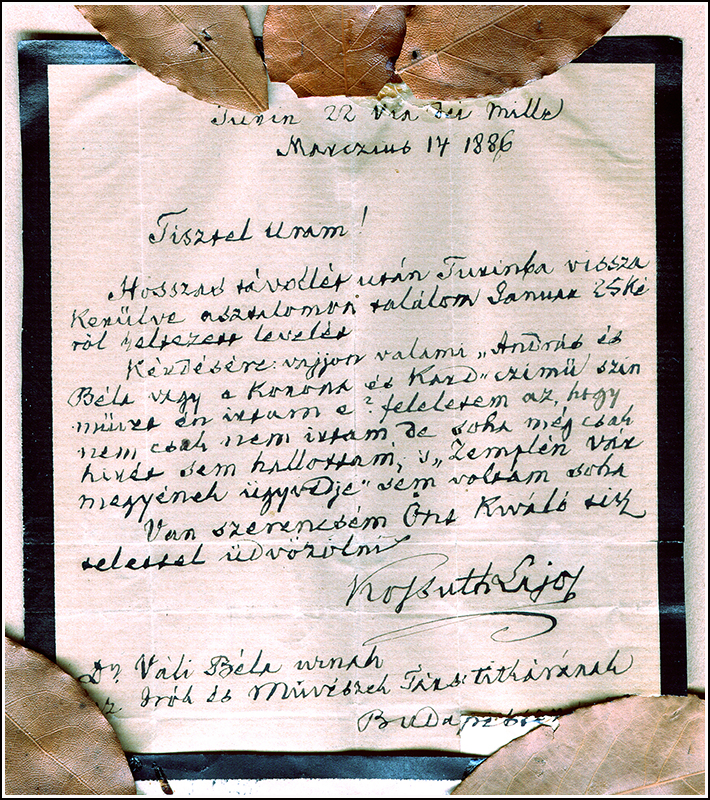 Turin 22 Via dei Mille
Marczius 14 1886
Tisztel Uram!
Hosszas távollét után Turinba vissza
kerülve asztalomon találom Januar 25ké
ről keltezett levelét
Kérdésére: vajjon valami „András és
Béla vagy a Korona és Kard" czimű szín
művet én irtam e? feleletem az, hogy
nem csak nem irtam de soha még csak
hirét sem hallottam, s „Zemplén vár
megyének ügyvédje" sem voltam soha
Van szerencsém Önt Kiváló tisz
telettel üdvözölni
Kossuth Lajos
Dr Váli Béla urnak
az Irók és Művészek Társ: titkárának
Budapesten